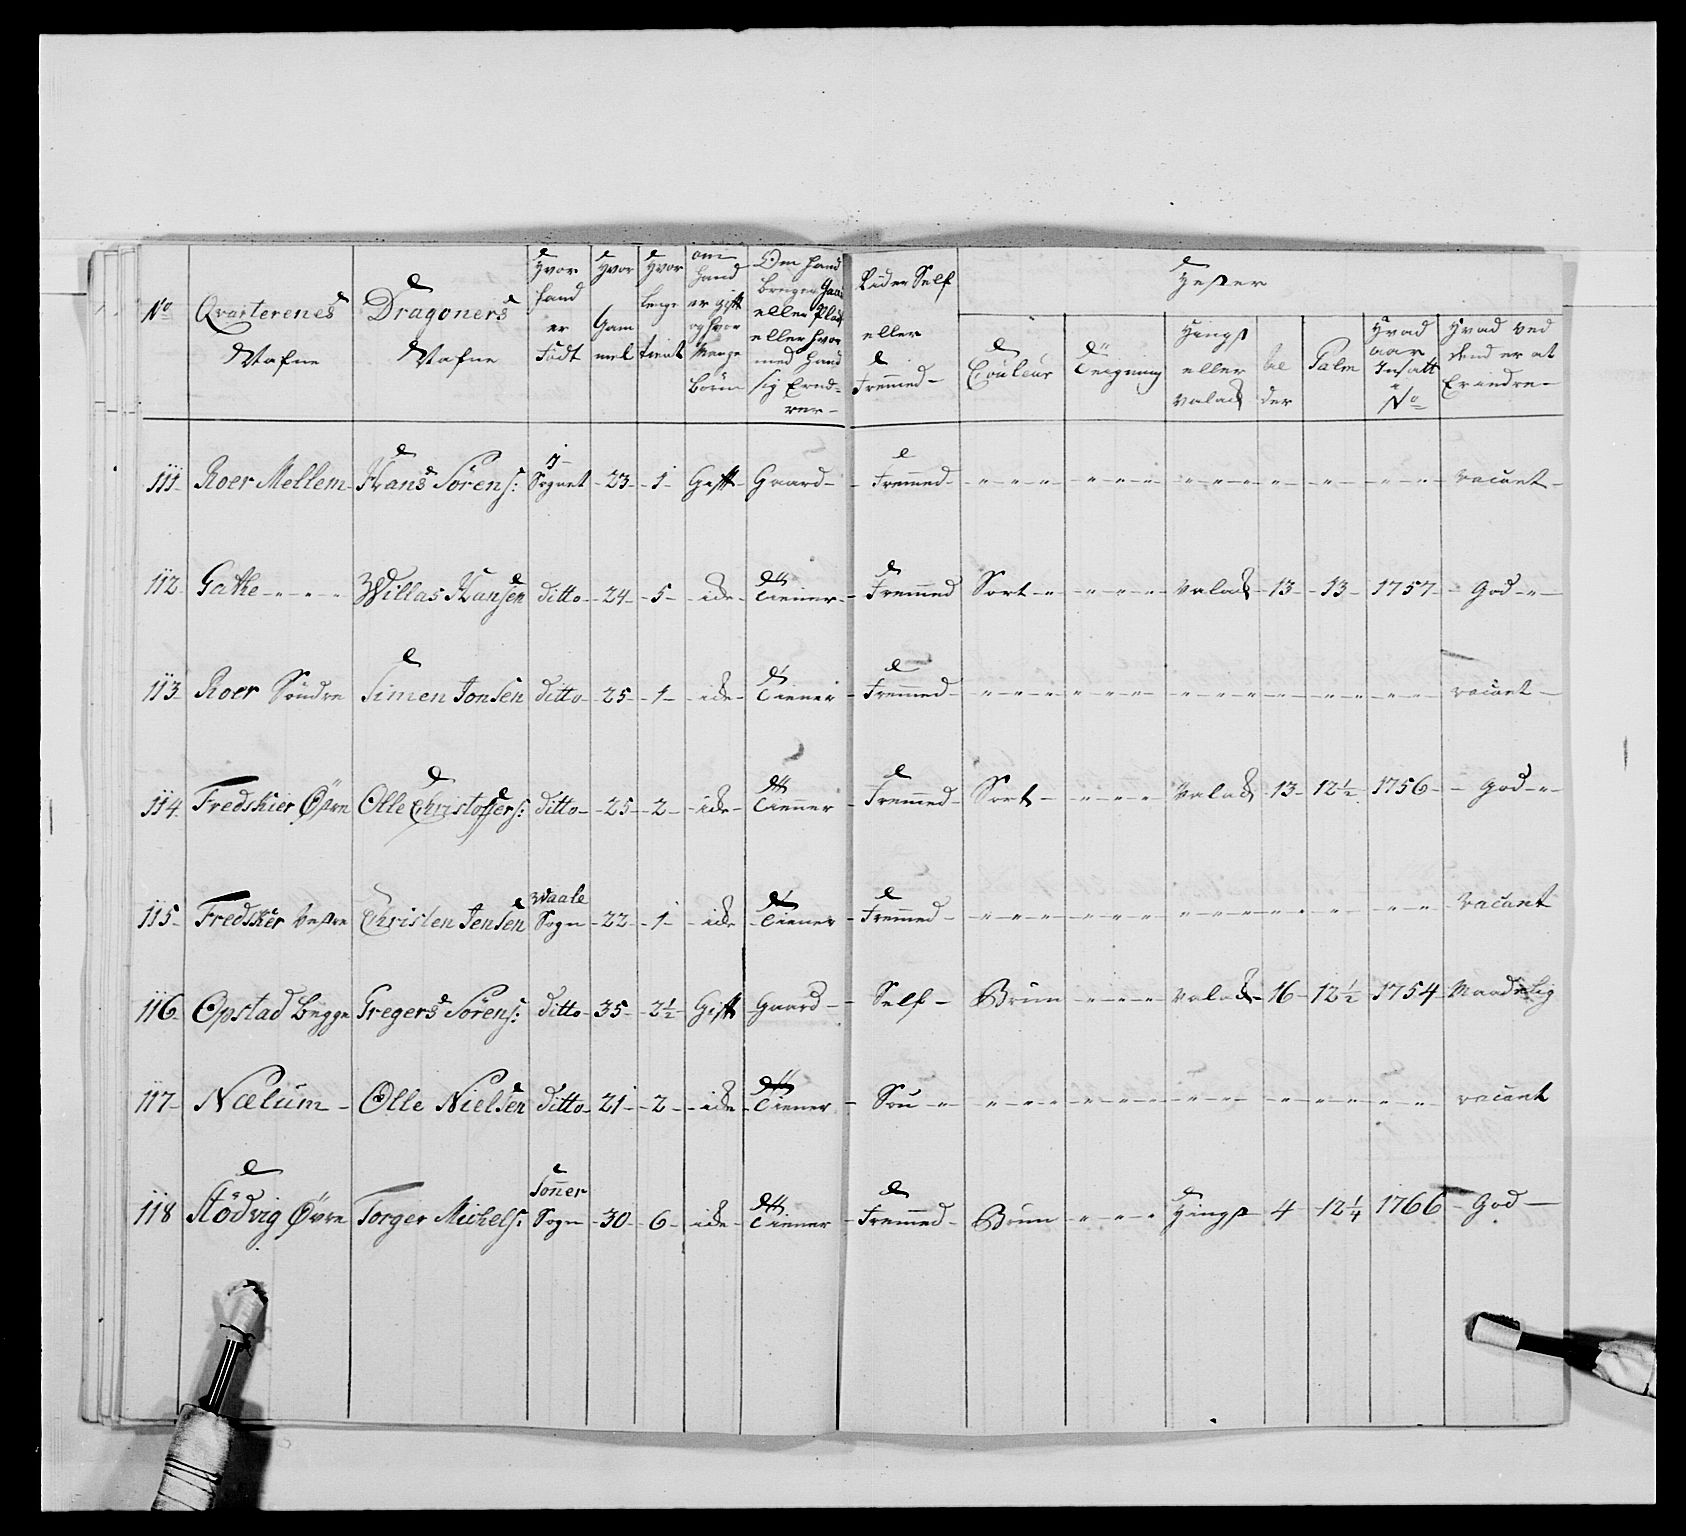 No Qvarterenes Nafne Dragoners Nafne Hvor hand er Født Hvor Gammel Hvor lenge tient om hand er gift og hvor Mange børn Om hand bruger Gaard eller Plads eller hvor med hand sig Ernærer Rider Self eller Fremmed Hester
Couleur Teigning Hingst eller valack Alder Palm Hvad aar Insatt No Hvad ved dend er at Erindre
111 Roer Mellem Hans Sørens: j Sognet 23 1 Gift Gaard Fremmed " " " " " " " vacant
112 Gatke Willas Hansen ditto 24 5 ide Tiener Fremmed Sort " valack 13 13 1757 God
113 Roer Søndre Simen Jonsen ditto 25 1 ide Tiener Fremmed " " " " " " " vacant
114 Fredskier Østre Olle Christoffers: ditto 25 2 ide Tienner Fremmed Sort " Valack 13 12½ 1756 God
115 Fredskier Vestre Christen Jensen Waale Sogn 22 1 ide Tiener Fremmed " " " " " " " vacant
116 Opstad Begge Gregers Sørens: ditto 35 2½ Gift Gaard Self Brun " valack 16 12½ 1754 Maadelig
117 Nælum Olle Nielsen ditto 21 2 ide Tiener " " " " " " " vacant
118 Stødvig Øvre Torger Michels: Sonner Sogn 30 6 ide Tiener Fremmed Brun " Hingst 4 12¼ 1766 God